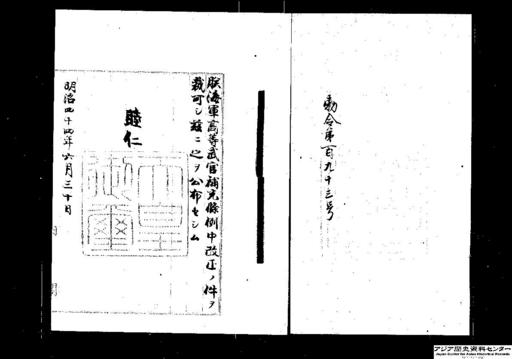 勅令第百九十三号
朕海軍高等武官補充條例中改正ノ件ヲ
裁可シ茲ニ之ヲ公布セシム
睦仁
天皇御璽
明治四十四年六月三十日
アジア歴史資料センター
Japan Center for Asian Historical Records